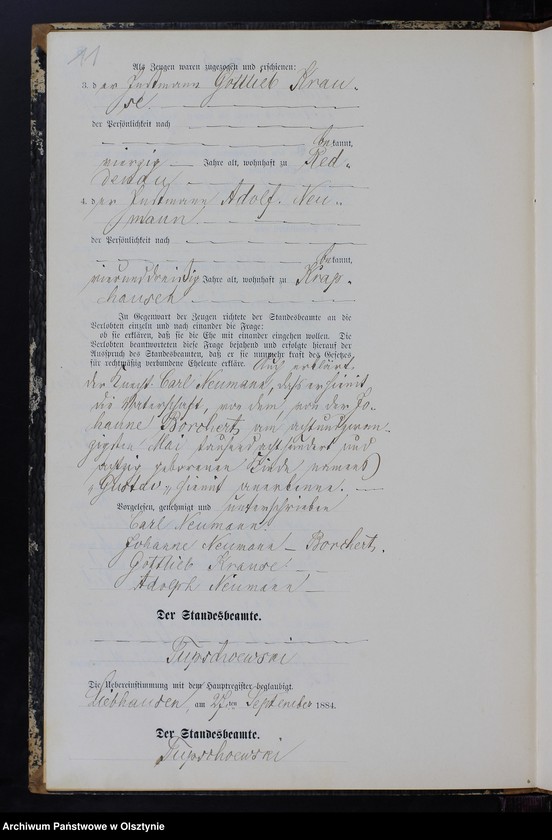 11
Als Zeugen waren zugezogen und erschienen:
3. der Instmann Gottlieb Krau-
se.
der Persönlichkeit nach
bekannt,
vierzig Jahre alt, wohnhaft zu Red-
denau
4. der Instmann Adolf Neu-
mann
der Persönlichkeit nach
bekannt,
vierunddreißig Jahre alt, wohnhaft zu Krap-
hausen
In Gegenwart der Zeugen richtete der Standesbeamte an die
Verlobten einzeln und nach einander die Frage:
ob sie erklären, daß sie die Ehe mit einander eingehen wollen. Die
Verlobten beantworteten diese Frage bejahend und erfolgte hierauf der
Ausspruch des Standesbeamten, daß er sie nunmehr kraft des Gesetzes
für rechtmäßig verbundene Eheleute erkläre. Auch erklärt
der Knecht Carl Neumann, daß er hiermit
die Vaterschaft, von dem, von der Jo-
hanne Borchert, am achtundzwan-
zigsten Mai tausend achthundert und
achtzig geborenen Kinde, namens
"Gustav" hiermit anerkenne.
Vorgelesen, genehmigt und unterschrieben
Carl Neumann.
Johanne Neumann - Borchert.
Gottlieb Krause
Adolph Neumann
Der Standesbeamte.
Die Uebereinstimmung mit dem Hauptregister beglaubigt.
Liebhausen, am 27ten September 1884.
Der Standesbeamte.
Archiwum Państwowe w Olsztynie